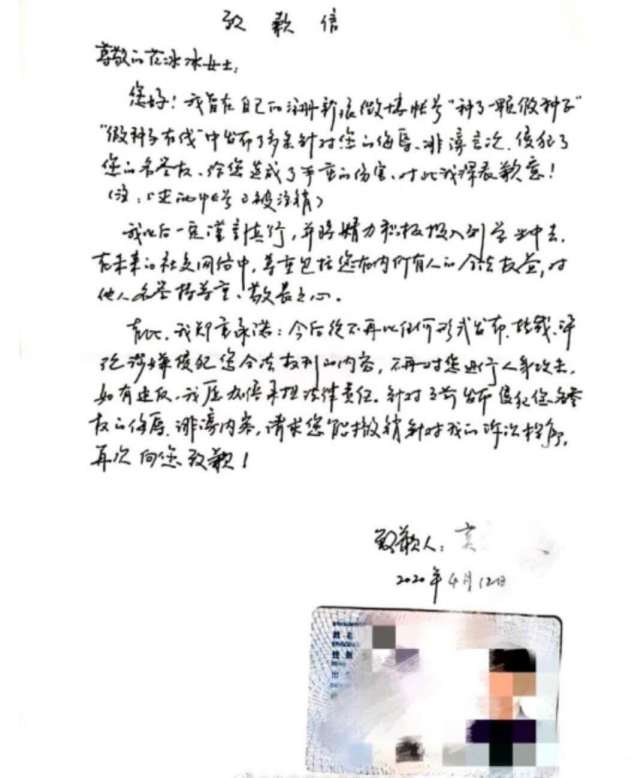 致歉信
尊敬的范冰冰女士：
您好！我曾在自己的注册新浪微博帐号“种了一颗微种子”
“微种子在线”中发布了多条针对您的侮辱、诽谤言论，侵犯了
您的名誉权，给您造成了严重的伤害，对此我深表歉意！
（注：上述的帐号已被注销）
我以后一定谨言慎行，并将精力积极投入到学业中去，
在未来的社交网络中，尊重包括您在内所有人的合法权益，对
他人名誉持尊重、敬畏之心。
在此，我郑重承诺：今后绝不再以任何形式发布、转载、评
论涉嫌侵犯您合法权利的内容，不再对您进行人身攻击，
如有违反，我愿加倍承担法律责任。针对之前发布侵犯您名誉
权的侮辱、诽谤内容，请求您能撤销针对我的诉讼程序，
再次向您致歉！
致歉人：
2020年4月12日
姓名
性别
出